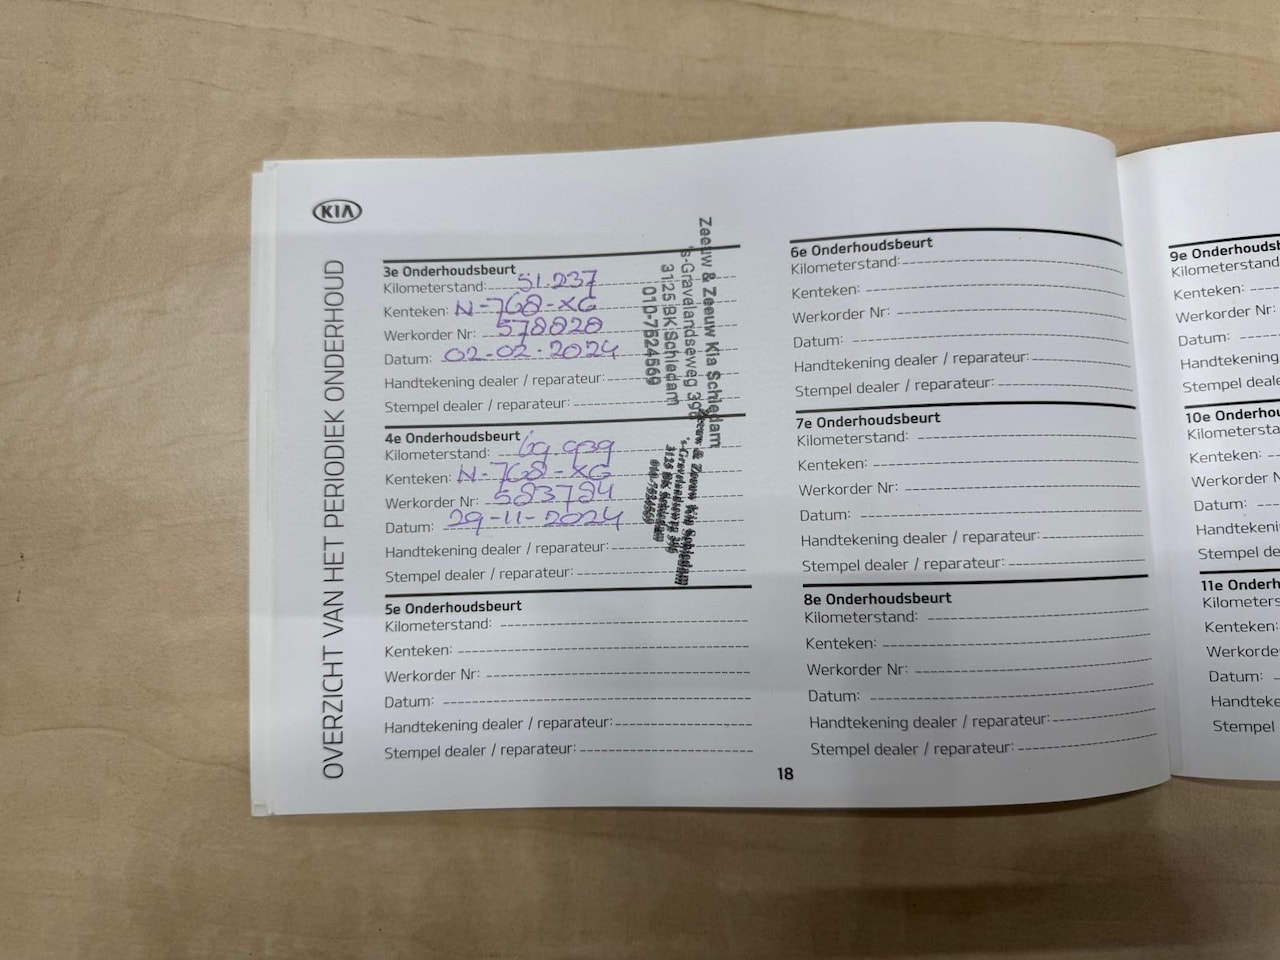 KIA
OVERZICHT VAN HET PERIODIEK ONDERHOUD
3e Onderhoudsbeurt
Kilometerstand: 51.237
Kenteken: N-768-XG
Werkorder Nr: 578828
Datum: 02-02-2024
Handtekening dealer / reparateur:
Stempel dealer / reparateur:
Zeeuw & Zeeuw Kia Schiedam
's-Gravelandseweg 396
3125 BK Schiedam
010-7524569
4e Onderhoudsbeurt
Kilometerstand: 69.939
Kenteken: N-768-XG
Werkorder Nr: 583784
Datum: 29-11-2024
Handtekening dealer / reparateur:
Stempel dealer / reparateur:
Zeeuw & Zeeuw Kia Schiedam
's-Gravelandseweg 396
3125 BK Schiedam
010-7524569
5e Onderhoudsbeurt
Kilometerstand:
Kenteken:
Werkorder Nr:
Datum:
Handtekening dealer / reparateur:
Stempel dealer / reparateur:
6e Onderhoudsbeurt
Kilometerstand:
Kenteken:
Werkorder Nr:
Datum:
Handtekening dealer / reparateur:
Stempel dealer / reparateur:
7e Onderhoudsbeurt
Kilometerstand:
Kenteken:
Werkorder Nr:
Datum:
Handtekening dealer / reparateur:
Stempel dealer / reparateur:
8e Onderhoudsbeurt
Kilometerstand:
Kenteken:
Werkorder Nr:
Datum:
Handtekening dealer / reparateur:
Stempel dealer / reparateur:
18
9e Onderhoudsb
Kilometerstand
Kenteken:
Werkorder Nr:
Datum:
Handtekening
Stempel deale
10e Onderhou
Kilometersta
Kenteken:
Werkorder N
Datum:
Handtekeni
Stempel de
11e Onderh
Kilometers
Kenteken:
Werkorde
Datum:
Handteke
Stempel